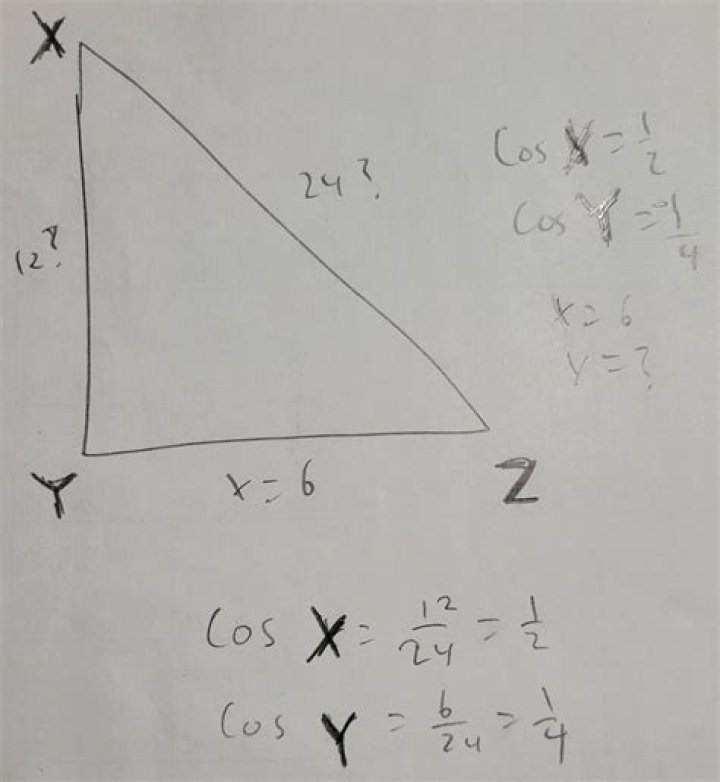 X
24?
12?
Cos X = 1/2
Cos Y = 1/4
x = 6
y = ?
Y
x = 6
Z
Cos X = 12/24 = 1/2
Cos Y = 6/24 = 1/4